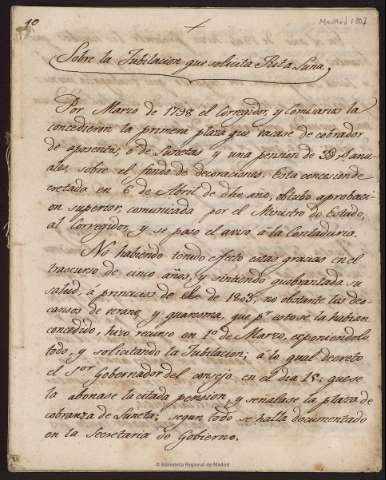 10
Madrid 1807
Sobre la Jubilacion que solicita Rita Luna.
Por Marzo de 1798 el Corregidor, y Comisarios la
concedieron la primera plaza que vacase de cobrador
de aposentos, ó de lunetas y una pension de 3 anu-
ales sobre el fondo de decoraciones. Esta concesion de-
cretada en 6 de Abril de dho año, obtubo aprobaci-
on superior, comunicada por el Ministro de Estado,
al Corregidor, y se paso el aviso á la Contaduria.
No habiendo tenido efecto estas gracias en el
trascurso de cinco años, y sintiendo quebrantada su
salud, á principios de de 1803, no obstante los des-
cansos de verano, y quaresma, que pr esto se la habian
concedido, hizo recurso en 1o de Marzo, exponiendolo
todo, y solicitando la Jubilacion; á lo qual decretó
el Sor Gobernador del consejo en el dia 15, que se
la abonase la citada pension, y señalase la plaza de
cobranza de luneta; segun todo se halla documentado
en la Secretaria de Gobierno.
© Biblioteca Regional de Madrid